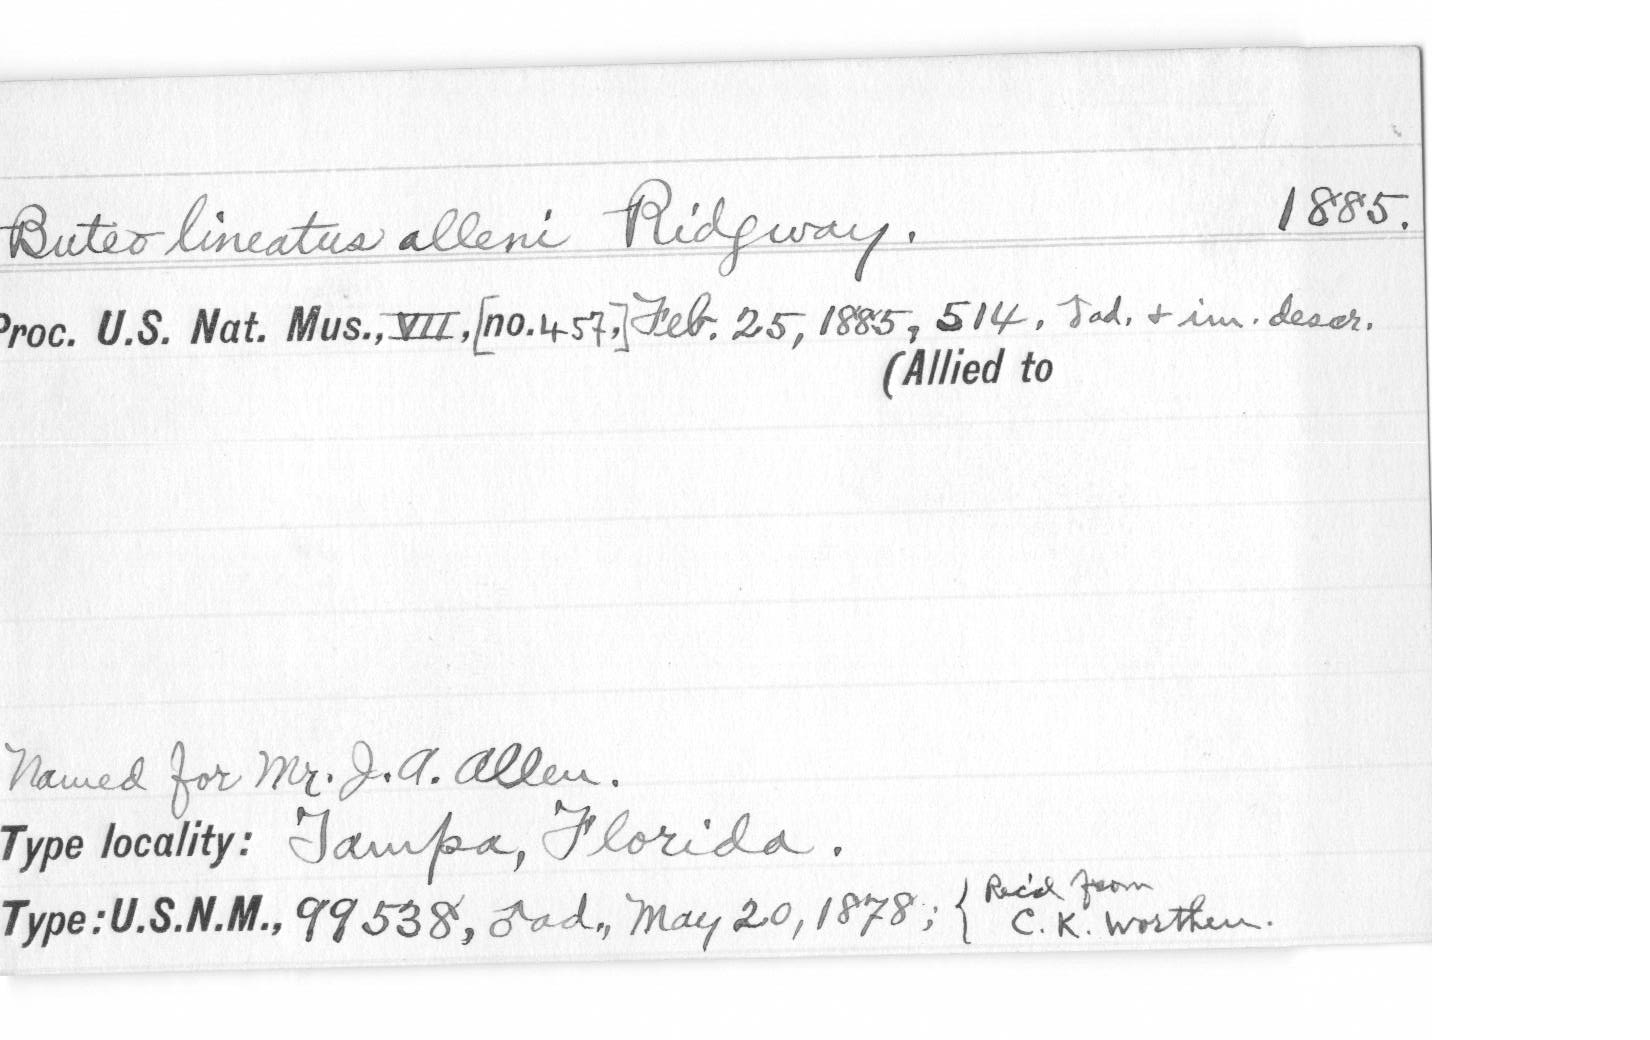 Buteo lineatus alleni Ridgway. 1885.
Proc. U.S. Nat. Mus., VII, [no. 457,] Feb. 25, 1885, 514. ♂ ad. + im. descr.
(Allied to
Named for Mr. J. A. Allen.
Type locality: Tampa, Florida.
Type: U.S.N.M., 99538, ♂ ad., May 20, 1878; { Rec'd from
C. K. Worthen.